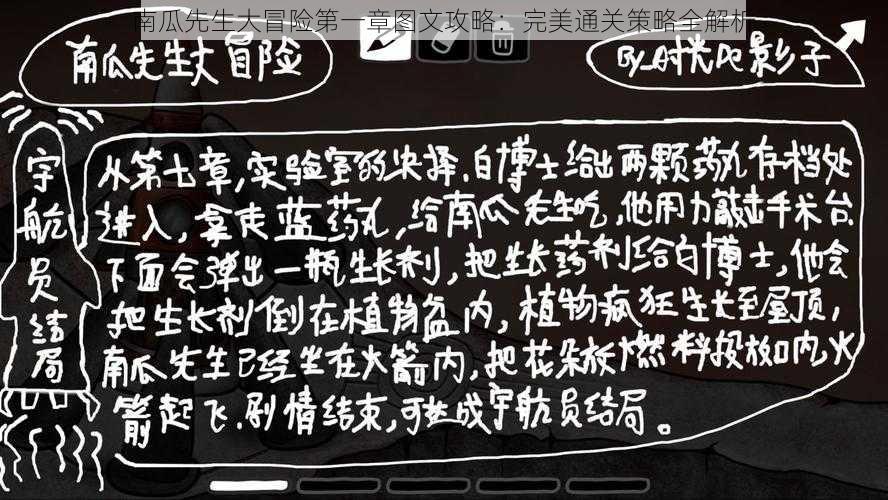 南瓜先生大冒险第一章图文攻略：完美通关策略全解析
南瓜先生大冒险
By_时光De影子
宇航员结局
从第七章,实验室的决择.白博士给出两颗药丸存档处
进入,拿走蓝药丸,给南瓜先生吃,他用力敲击手术台
下面会弹出一瓶生长剂,把生长药剂给白博士,他会
把生长剂倒在植物盆内,植物疯狂生长至屋顶,
南瓜先生已经坐在火箭内,把花朵放燃料投放口内,火
箭起飞.剧情结束,可达成宇航员结局。